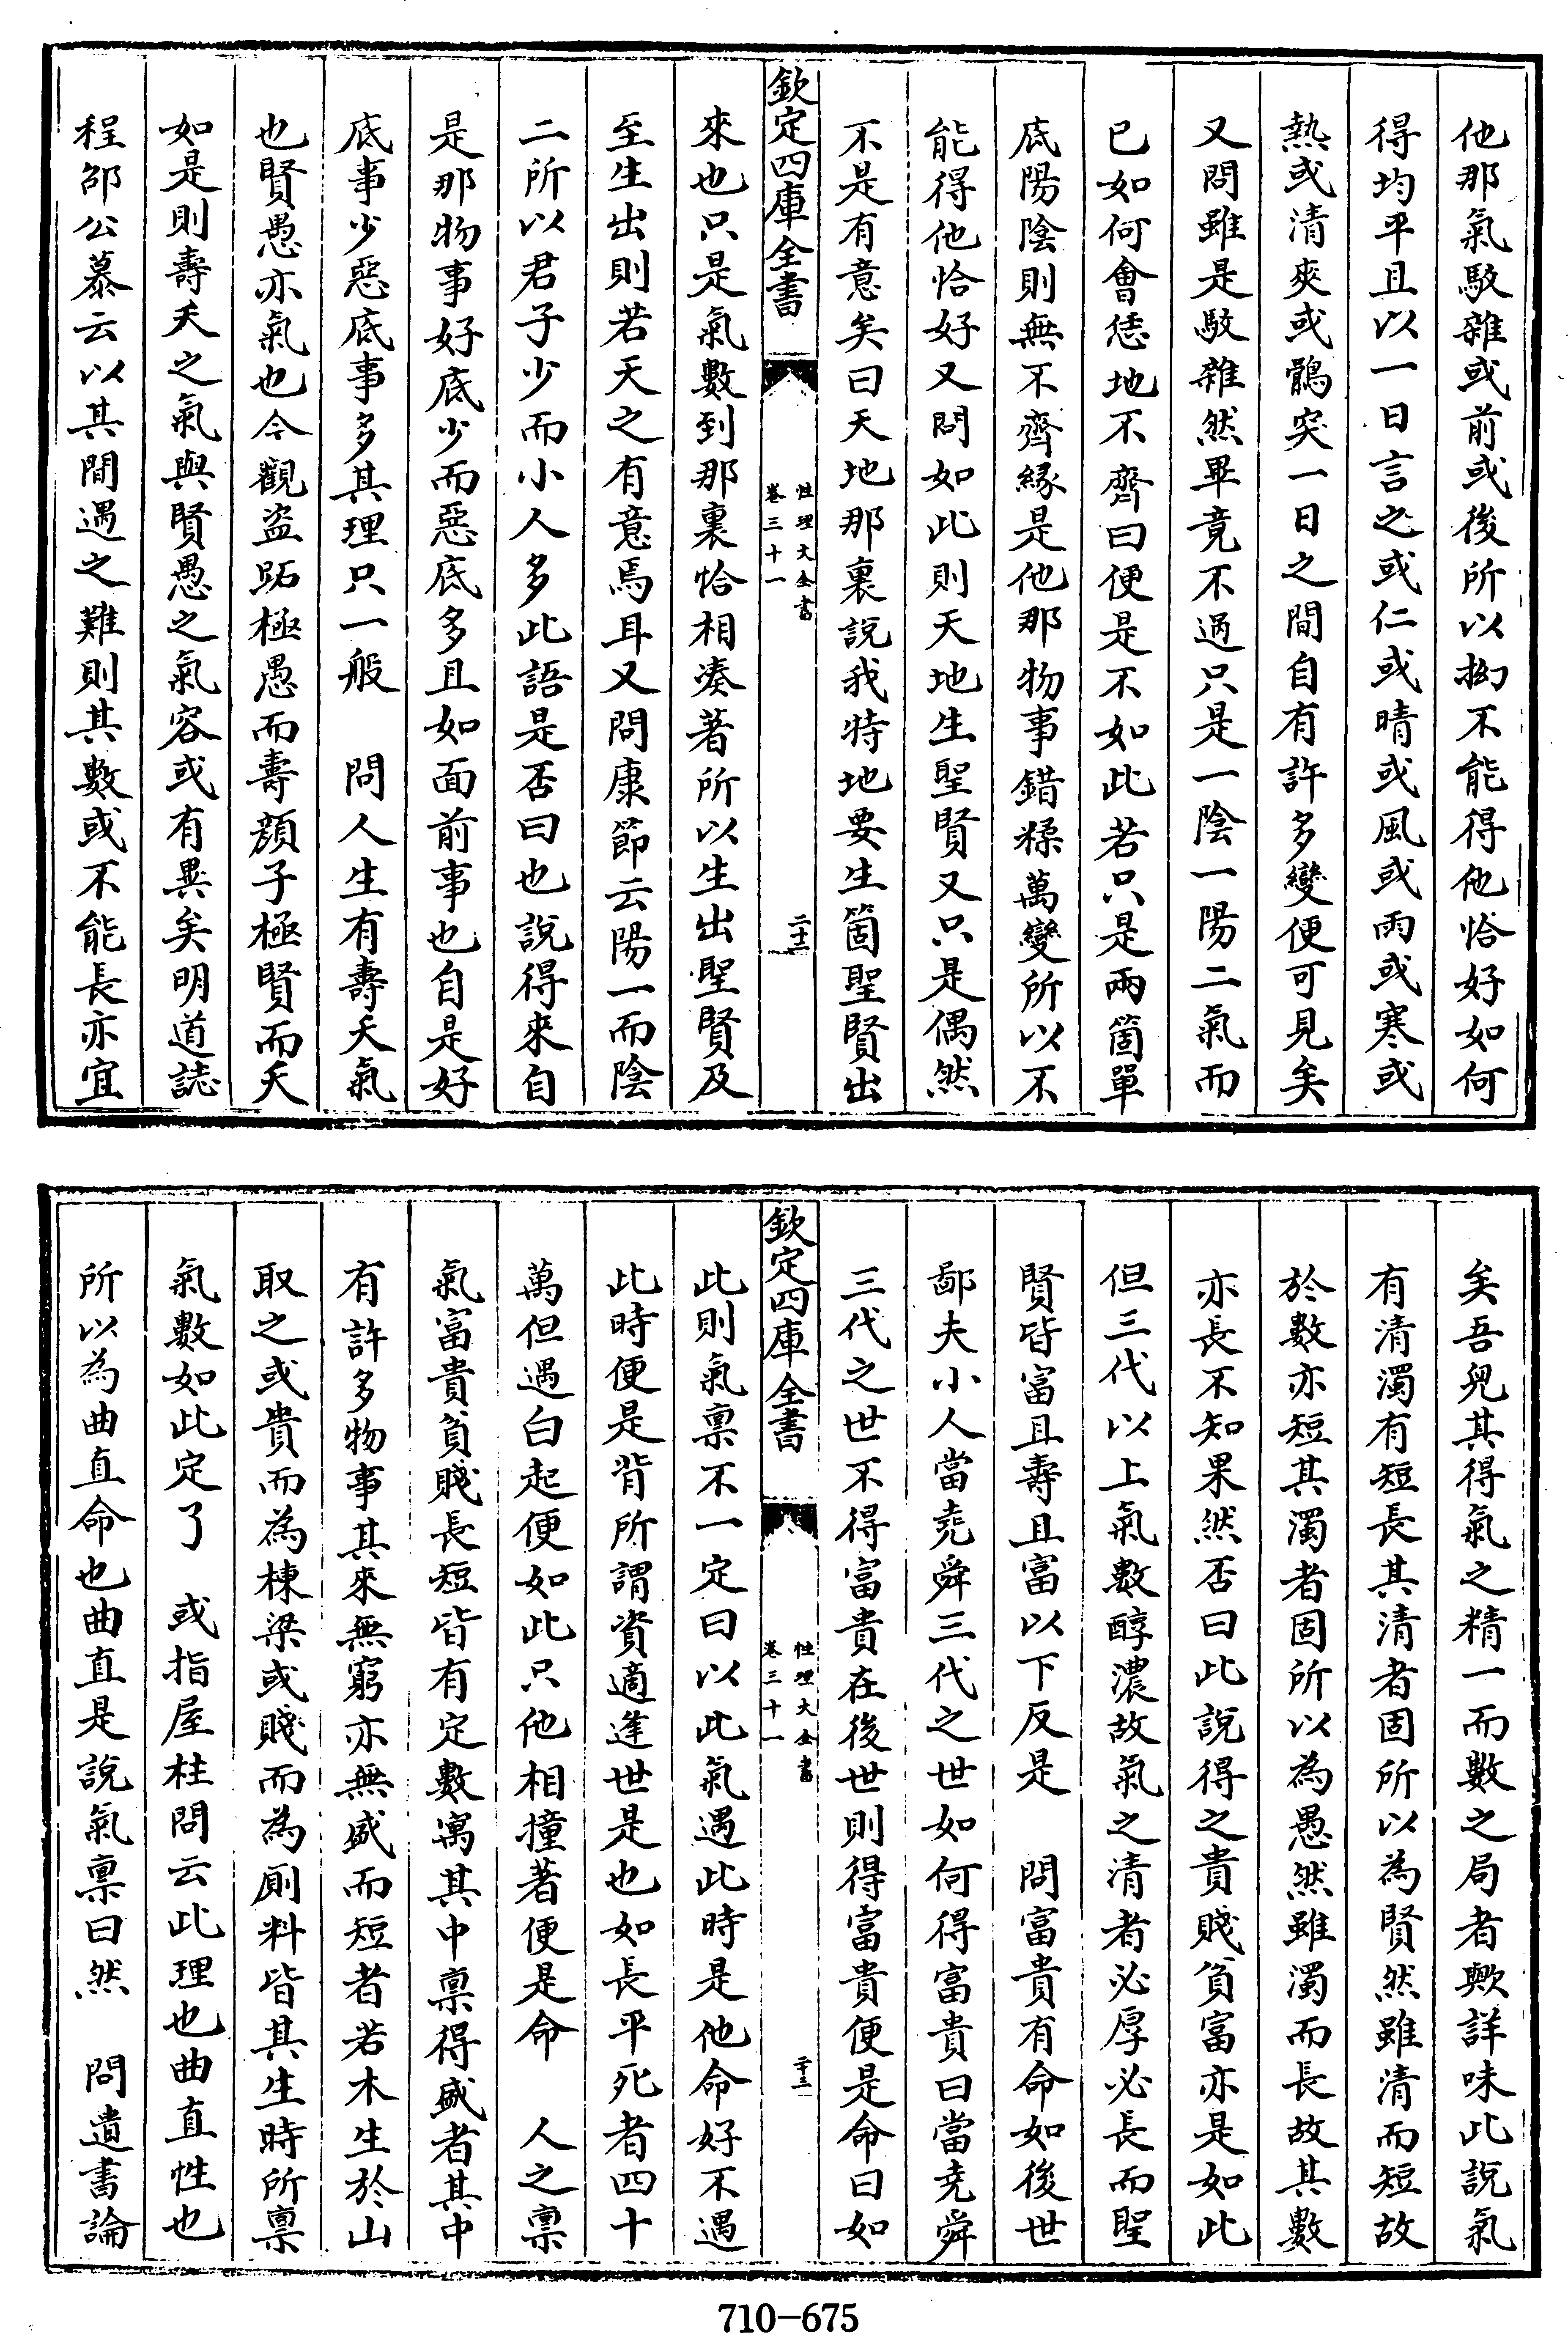 他那氣駁雜或前或後所以拗不能得他恰好如何
得均平且以一日言之或仁或晴或風或雨或寒或
熱或清爽或鶻突一日之間自有許多變便可見矣
又問雖是駁雜然畢竟不過只是一陰一陽二氣而
已如何會恁地不齊曰便是不如此若只是兩箇單
底陽陰則無不齊緣是他那物事錯糅萬變所以不
能得他恰好又問如此則天地生聖賢又只是偶然
不是有意矣曰天地那裏說我特地要生箇聖賢出
欽定四庫全書
性理大全書
卷三十一
二十二
來也只是氣數到那裏恰相湊著所以生出聖賢及
至生出則若天之有意焉耳又問康節云陽一而陰
二所以君子少而小人多此語是否曰也說得來自
是那物事好底少而惡底多且如面前事也自是好
底事少惡底事多其理只一般　問人生有壽夭氣
也賢愚亦氣也今觀盜跖極愚而壽顏子極賢而夭
如是則壽夭之氣與賢愚之氣容或有異矣明道誌
程邵公墓云以其間遇之難則其數或不能長亦宜
矣吾兒其得氣之精一而數之局者歟詳味此說氣
有清濁有短長其清者固所以為賢然雖清而短故
於數亦短其濁者固所以為愚然雖濁而長故其數
亦長不知果然否曰此說得之貴賤貧富亦是如此
但三代以上氣數醇濃故氣之清者必厚必長而聖
賢皆富且壽且富以下反是　問富貴有命如後世
鄙夫小人當堯舜三代之世如何得富貴曰當堯舜
三代之世不得富貴在後世則得富貴便是命曰如
欽定四庫全書
性理大全書
卷三十一
二十三
此則氣禀不一定曰以此氣遇此時是他命好不遇
此時便是背所謂資適逢世是也如長平死者四十
萬但遇白起便如此只他相撞著便是命　人之禀
氣富貴貧賤長短皆有定數寓其中禀得盛者其中
有許多物事其來無窮亦無盛而短者若木生於山
取之或貴而為棟梁或賤而為廁料皆其生時所禀
氣數如此定了　或指屋柱問云此理也曲直性也
所以為曲直命也曲直是說氣禀曰然　問遺書論
710-675